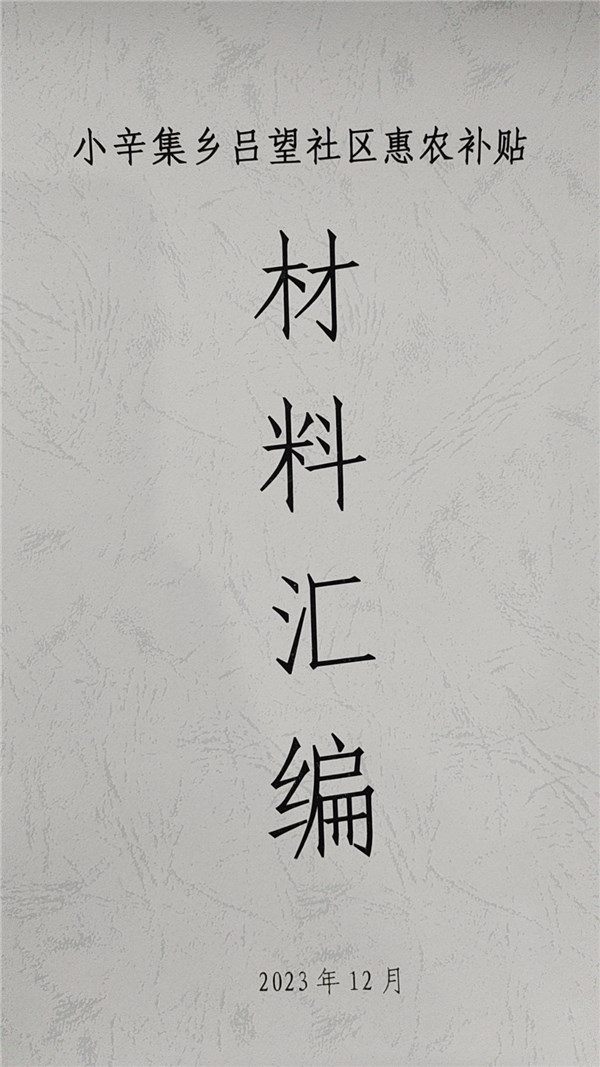 小辛集乡吕望社区惠农补贴
材
料
汇
编
2023年12月